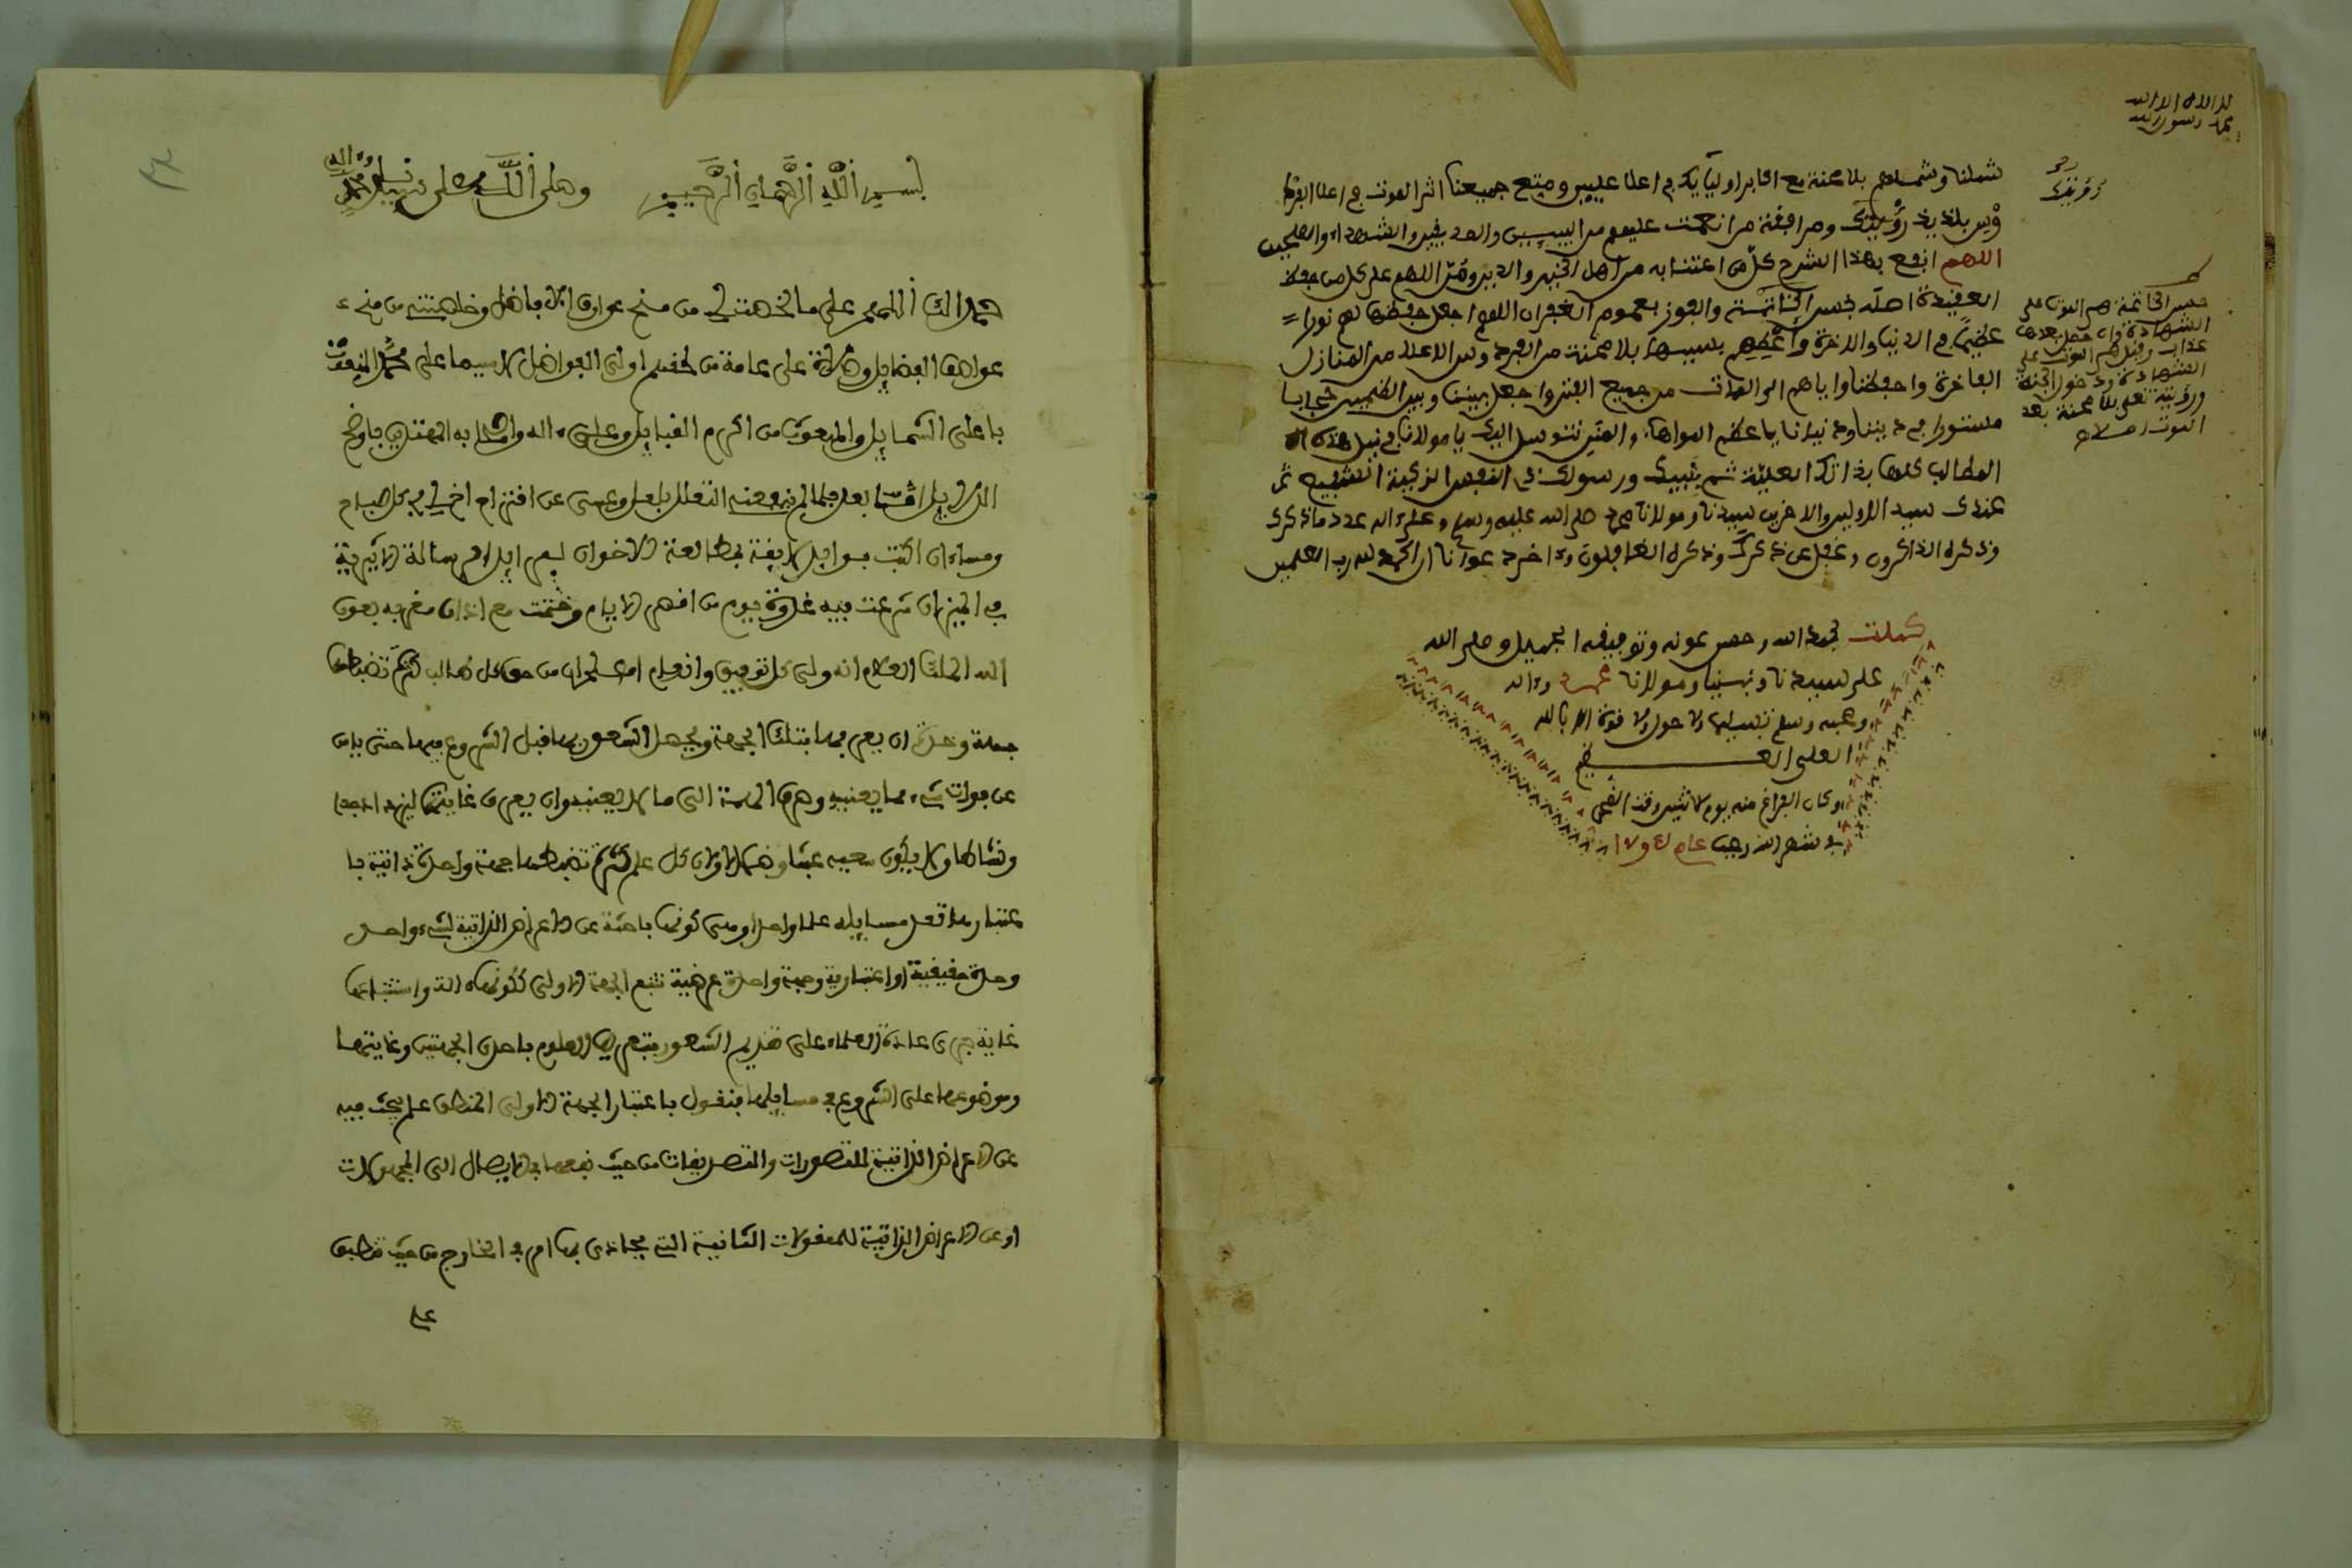 لا اله الا الله
محمد رسول الله
شملنا وشملهم بلا محنة مع اكابر اوليايك في اعلا عليين ومتع جميعنا اثر الموت في اعلا الفرد
وس بلذيذ رؤيتك ومرافقة من انعمت عليهم من النبيين والصديقين والشهداء والصلحين
اللهم انفع بهذا الشرح كل من اعتنا به من اهل الخير والدين ومن اللهم على كل من حفظ
العقيدة اصله بحسن الخاتمة والفوز بعموم الغفران اللهم اجعل حفظها لهم نورا
عظيما في الدنيا والاخرة واعطهم بسببها بلا محنة من الفردوس الاعلا من المنازل
الفاخرة واحفظنا واياهم الى الممات من جميع الفتن واجعل بيننا وبين الظلمين حجابا
مستورا في ديننا ودنيانا يا عظيم المواهب والمنن نتوسل اليك يا مولانا في نيل هذه
المطالب كلها بذاتك العلية ثم بنبيك ورسولك ذي النفس الزكية الشفيع
عندك سيد الاولين والاخرين سيدنا ومولانا محمد صلى الله عليه وسلم وعلى اله عدد ما ذكرك
وذكره الذاكرون وغفل عن ذكرك وذكره الغافلون واخر دعوانا ان الحمد لله رب العلمين
حسن الخاتمة هي الموت على
الشهادة وان حصل بعدها
عذاب وقيل هي الموت على
الشهادة ودخول الجنة
ورؤيته تعلى بلا محنة بعد
الموت
كملت بحمد الله وحسن عونه وتوفيقه الجميل وصلى الله
على سيدنا ونبينا ومولانا محمد واله
وصحبه وسلم تسليما ولا حول ولا قوة الا بالله
العلي العظيم
وكان الفراغ منه يوم الاثنين وقت الضحى
في شهر الله رجب عام
بسم الله الرحمان الرحيم وصلى اللهم على سيدنا محمد واله
حمدا لك اللهم على ما خصصت من منح عوارف الافاضل وخلصته من
عواصف الفضايل وصلاة على عامة من اولى الفواضل لاسيما على محمد المنعوت
باعلى الشمايل والمبعوث من اكرم القبايل وعلى اله واصحابه المهتدين باوضح
الدلايل اما بعد فلما لم ينفعنى التعلل بلعل وعسى عن اقتراح اخ لي في كل صباح
ومساء ان اكتب فوايد لايقة بمطالعة الاخوان لبعض ايلاف رسالة الاثيرية
في الميزان شرعت فيه غدوة يوم من اقصر الايام وختمت مع اذان مغربه بعون
الله الملك العلام انه ولي كل توفيق وانعام اعلم ان من حق كل طالب كثرة تضبطها
جملة وحدة ان يعرفها بتلك الجهة ويحصل الشعور بها قبل الشروع فيها حتى يامن
عن فوات شيء مما يعنيه وصرف الهمة الى ما لا يعنيه وان يعرف غايتها ليزداد جدا
ونشاطا ولا يكون سعيه عبثا وضلالا ولان كل علم كثرة تضبطها جهة واحدة ذاتية با
عتبارها تعد مسايله علما واحدا وهى كونها باحثة عن الاعراض الذاتية لشيء واحد
وحدة حقيقية او اعتبارية وجهة واحدة عرضية تتبع الجهة الاولى ككونها الة واستتباعها
غاية جرى عادة العلماء على تقديم الشعور بتعريف العلوم باحدى الجهتين وغايتها
وموضوعها على الشروع في مسايلها فنقول باعتبار الجهة الاولى المنطق علم يبحث فيه
عن الاعراض الذاتية للتصورات والتصديقات من حيث نفعها في الايصال الى المجهولات
او عن الاعراض الذاتية للمعقولات الثانية التي يحاذى بها امر في الخارج من حيث تنطبق
على